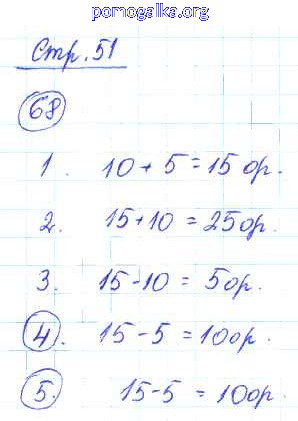 pomogalka.org
Стр. 51
68
1. 10 + 5 = 15 ор.
2. 15 + 10 = 25 ор.
3. 15 - 10 = 5 ор.
4. 15 - 5 = 10 ор.
5. 15 - 5 = 10 ор.